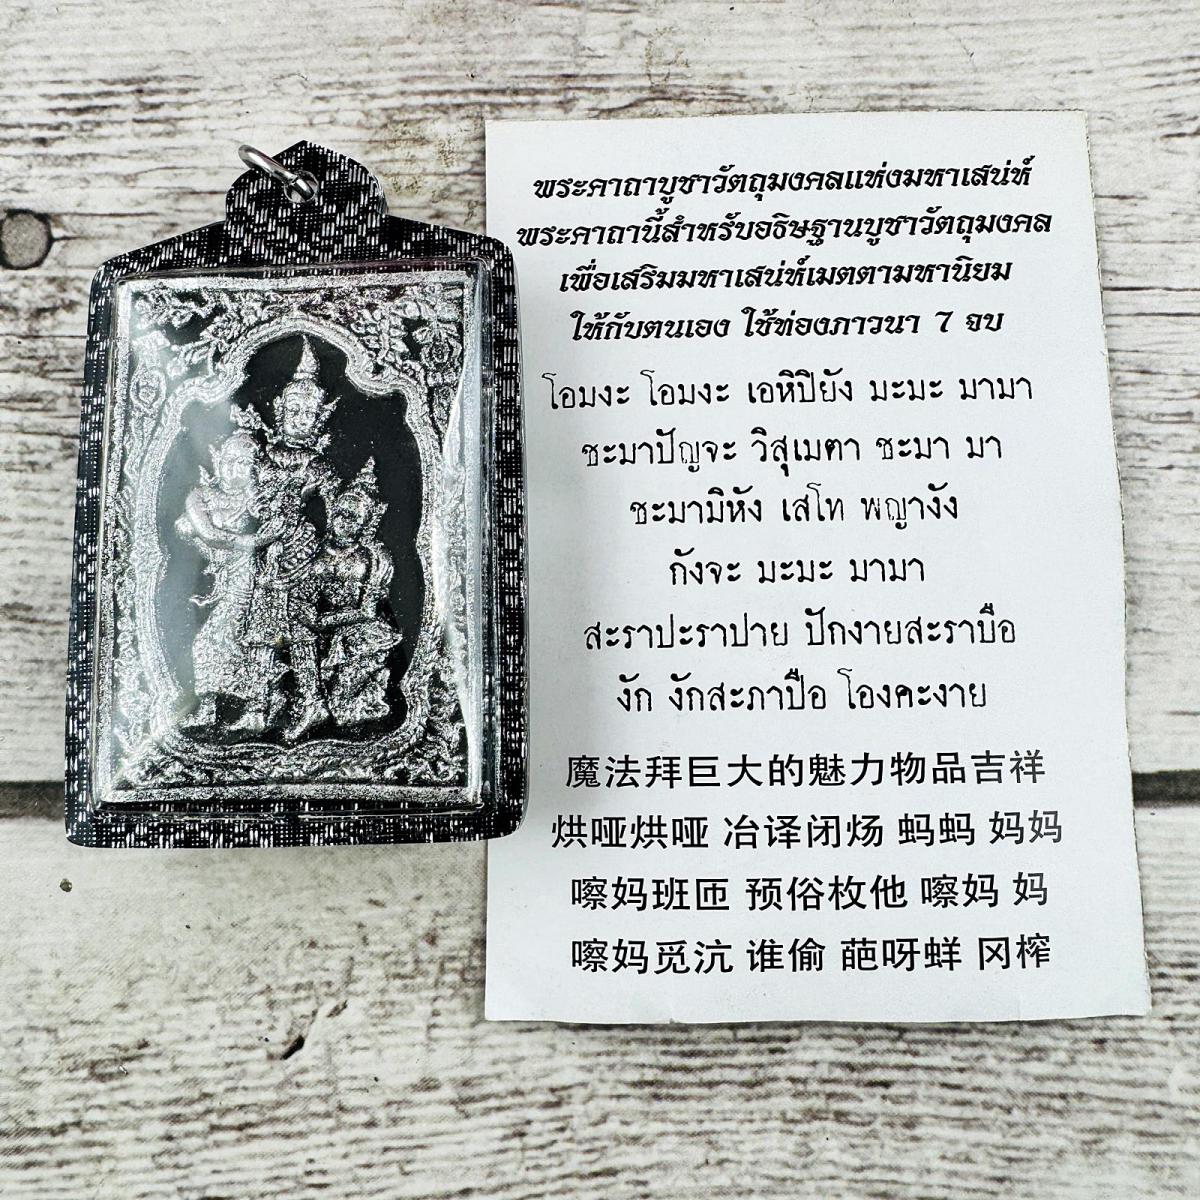 พระคาถาบูชาวัตถุมงคลแห่งมหาเสน่ห์
พระคาถานี้สำหรับอธิษฐานบูชาวัตถุมงคล
เพื่อเสริมมหาเสน่ห์เมตตามหานิยม
ให้กับตนเอง ใช้ท่องภาวนา 7 จบ
โอมงะ โอมงะ เอหิปิยัง มะมะ มามา
ชะมาปัญจะ วิสุเมตา ชะมา มา
ชะมามิหัง เสโท พญางัง
กังจะ มะมะ มามา
สะราปะราปาย ปักงายสะราบือ
งัก งักสะภาปือ โองคะงาย
魔法拜巨大的魅力物品吉祥
烘哑烘哑 冶译闭炀 蚂蚂 妈妈
嚓妈班匝 预俗枚他 嚓妈 妈
嚓妈觅沆 谁偷 葩呀蛘 冈榨